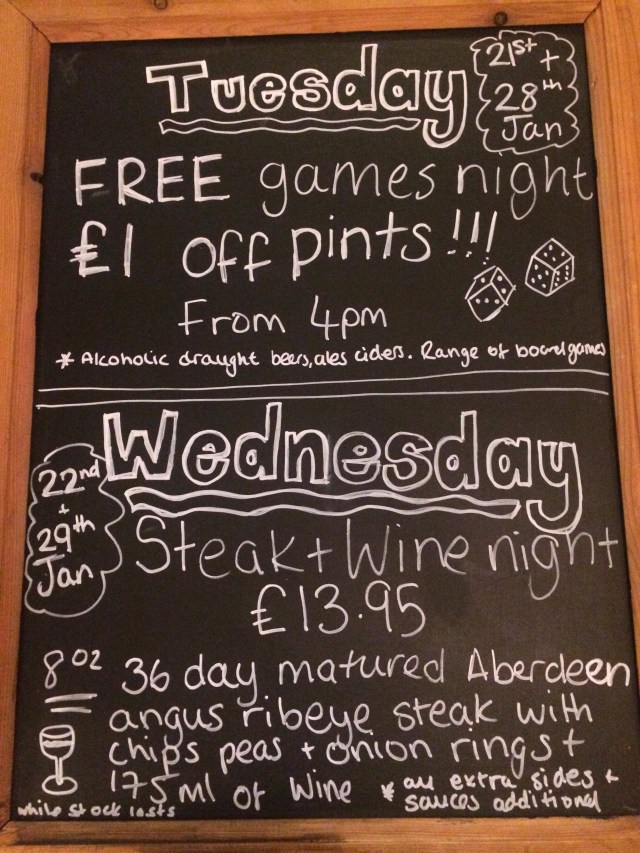 Tuesday
21st +
28th
Jan
FREE games night
£1 off pints!!!
From 4pm
* Alcoholic draught beers, ales ciders. Range of boardgames
Wednesday
22nd
+
29th
Jan
Steak + Wine night
£13.95
8oz 36 day matured Aberdeen
angus ribeye steak with
chips peas + onion rings +
175ml of wine
* all extra sides +
sauces additional
while stock lasts